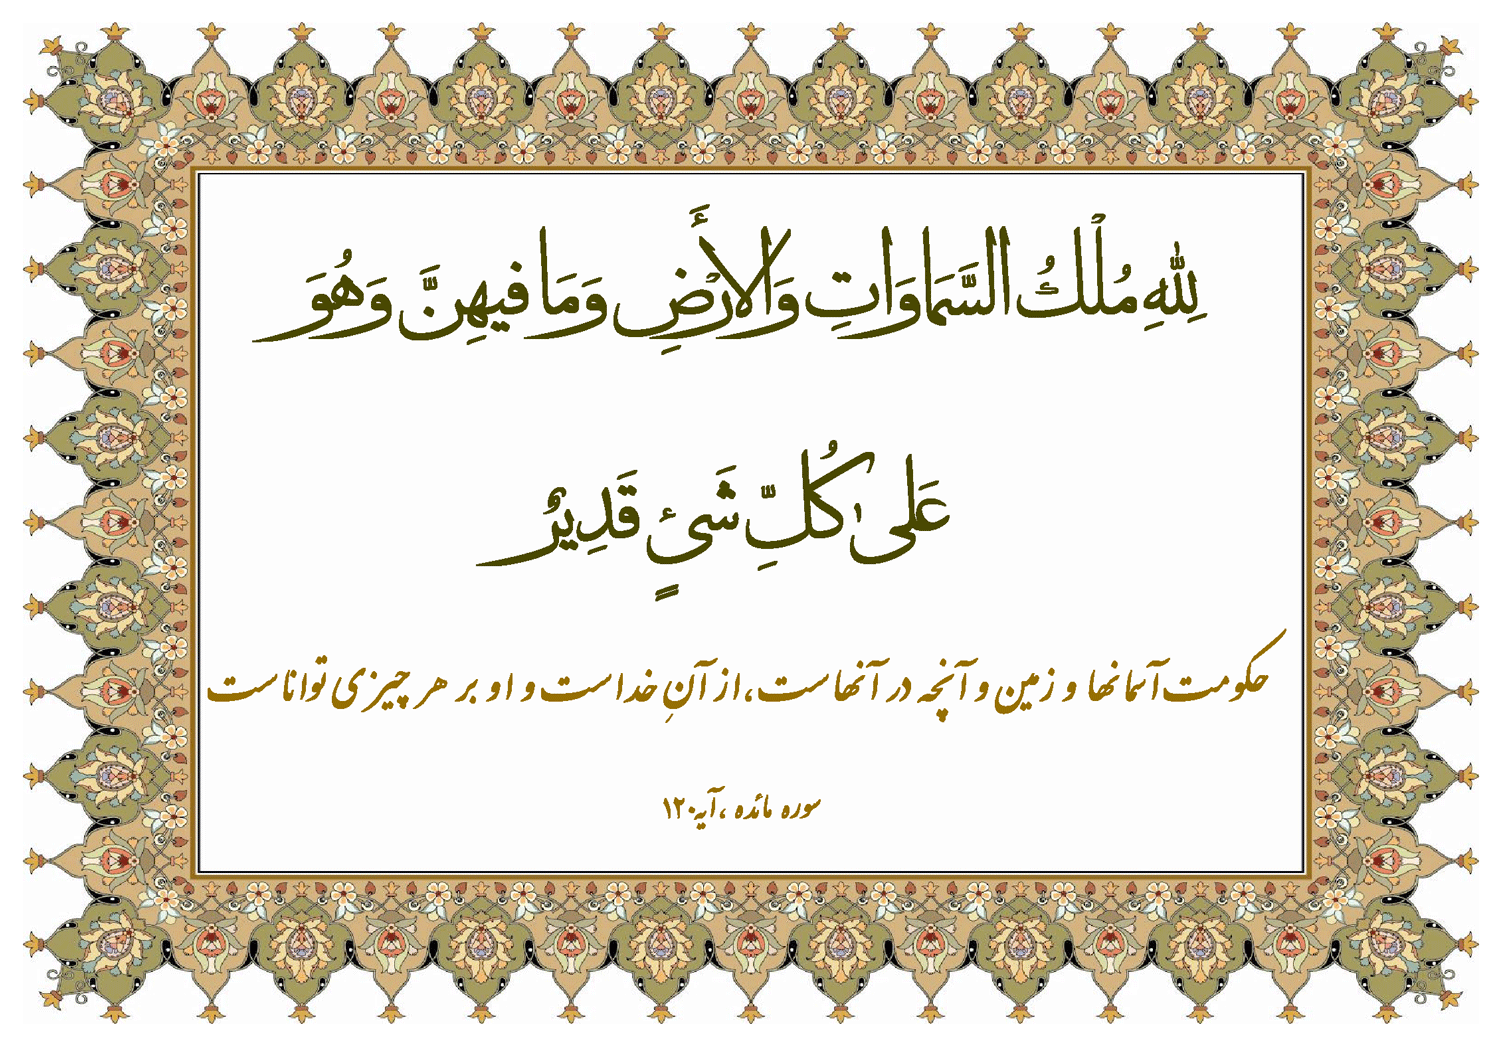 لِلَّهِ مُلْكُ السَّمَاوَاتِ وَالْأَرْضِ وَمَا فِيهِنَّ وَهُوَ
عَلَىٰ كُلِّ شَيْءٍ قَدِيرٌ
حکومت آسمانها و زمین و آنچه در آنهاست، از آنِ خداست و او بر هر چیزی تواناست
سوره مائده ،آیه۱۲۰